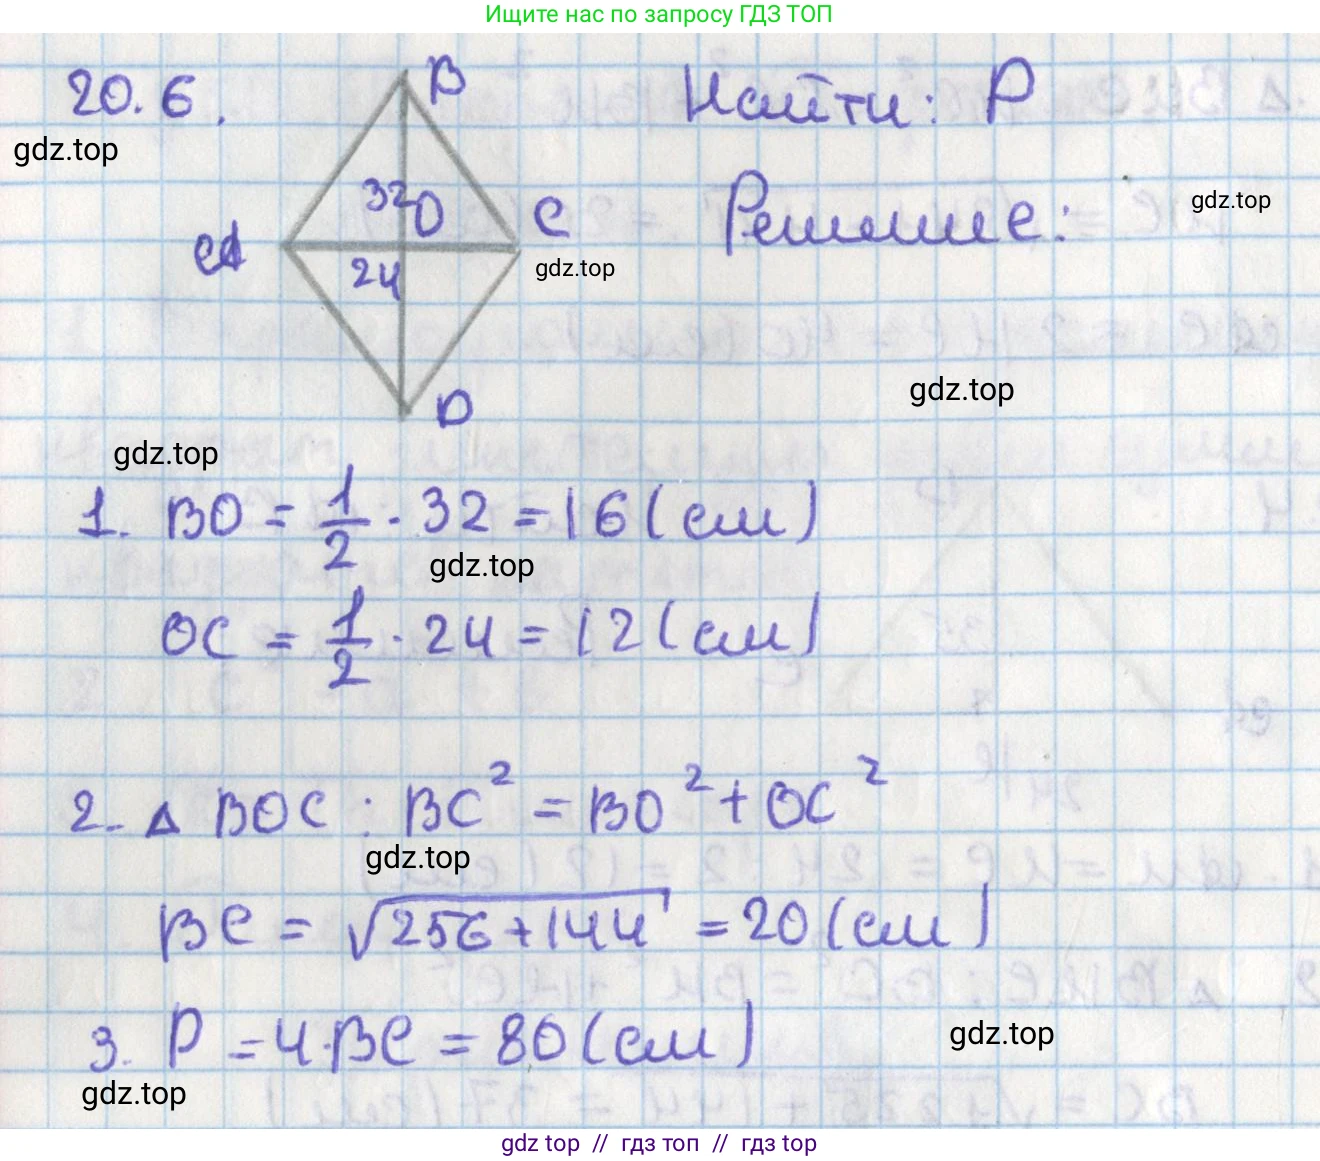 Ищите нас по запросу ГДЗ ТОП
20.6.
B
Найти: P
gdz.top
32
O
C
Решение:
gdz.top
A
24
gdz.top
gdz.top
D
gdz.top
1. BO = 1/2 · 32 = 16 (см)
gdz.top
OC = 1/2 · 24 = 12 (см)
2. △ BOC : BC² = BO² + OC²
gdz.top
BC = √256+144 = 20 (см)
3. P = 4·BC = 80 (см)
gdz.top
gdz.top
gdz top // гдз топ // гдз top